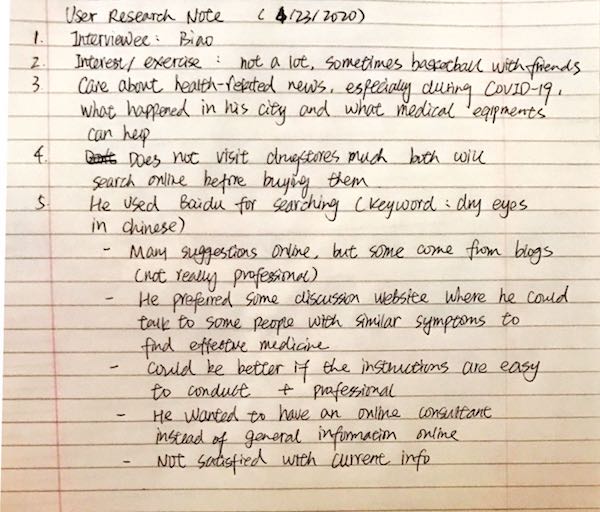 User Research Note (4/23/2020)
1. Interviewee: Biao
2. Interest/exercise: not a lot, sometimes basketball with friends
3. Care about health-related news, especially during COVID-19,
what happened in his city and what medical eqipments
can help
4. Does not visit drugstores much both will
search online before buying them
5. He used Baidu for searching (keyword: dry eyes
in chinese)
- Many suggestions online, but some come from blogs
(not really professional)
- He preferred some discussion website where he could
talk to some people with similar symptoms to
find effective medicine
- Could be better if the instructions are easy
to conduct + professional
- He wanted to have an online consultant
instead of general information online
- Not satisfied with current info